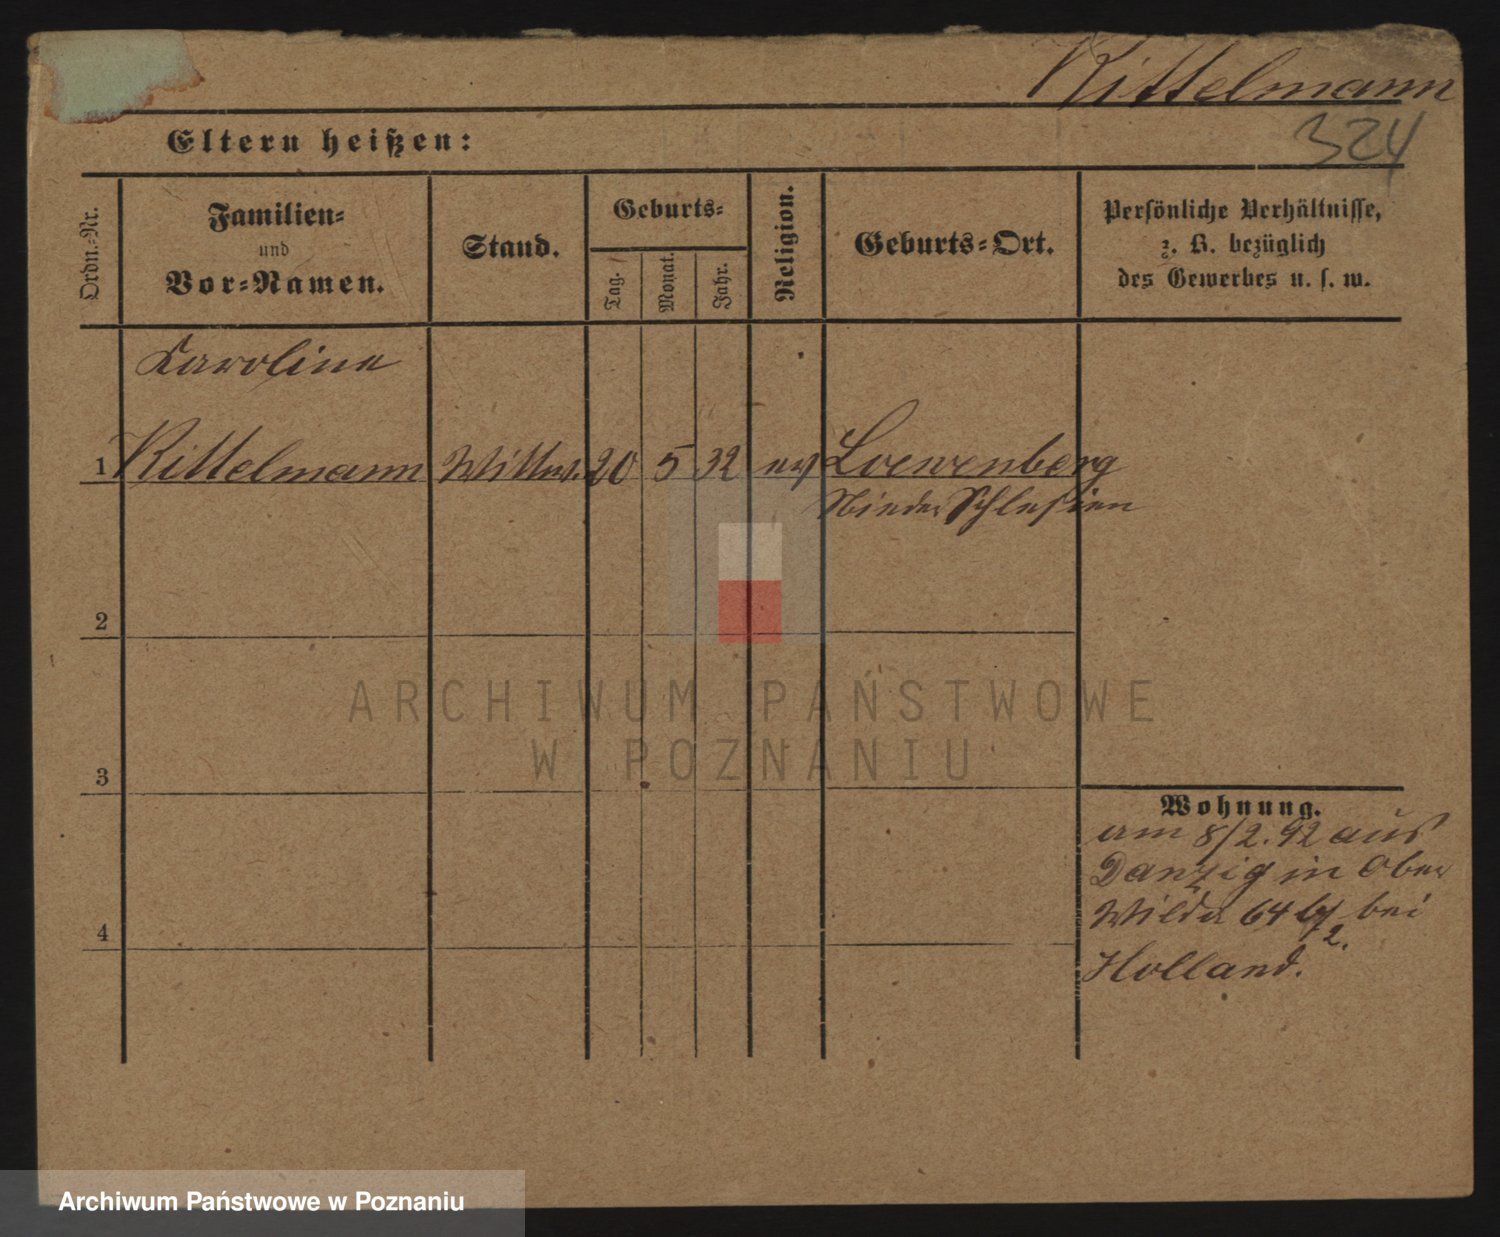 Rittelmann
324
Eltern heißen:
Ordn.-Nr.
Familien-
und
Vor-Namen.
Stand.
Geburts-
Tag.
Monat.
Jahr.
Religion.
Geburts-Ort.
Persönliche Verhältnisse,
z. B. bezüglich
des Gewerbes u. s. w.
Karoline
1 Rittelmann Wittwe. 20 5 32 ev Loewenberg
Nieder Schlesien
2
3
4
Wohnung.
am 8/2. 92 aus
Danzig in Ober
Wilda 64 bei
2.
Holland.
ARCHIWUM PAŃSTWOWE
W POZNANIU
Archiwum Państwowe w Poznaniu